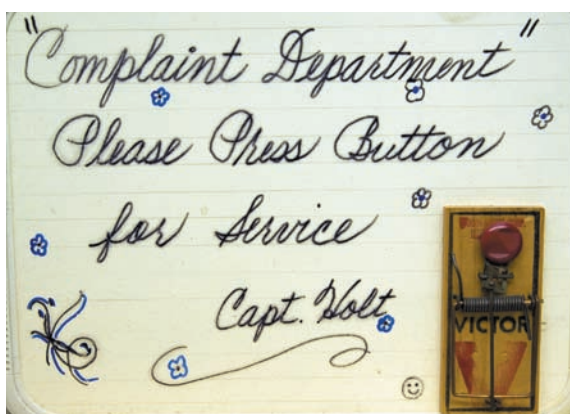 "Complaint Department"
Please Press Button
for Service
Capt. Holt
VICTOR